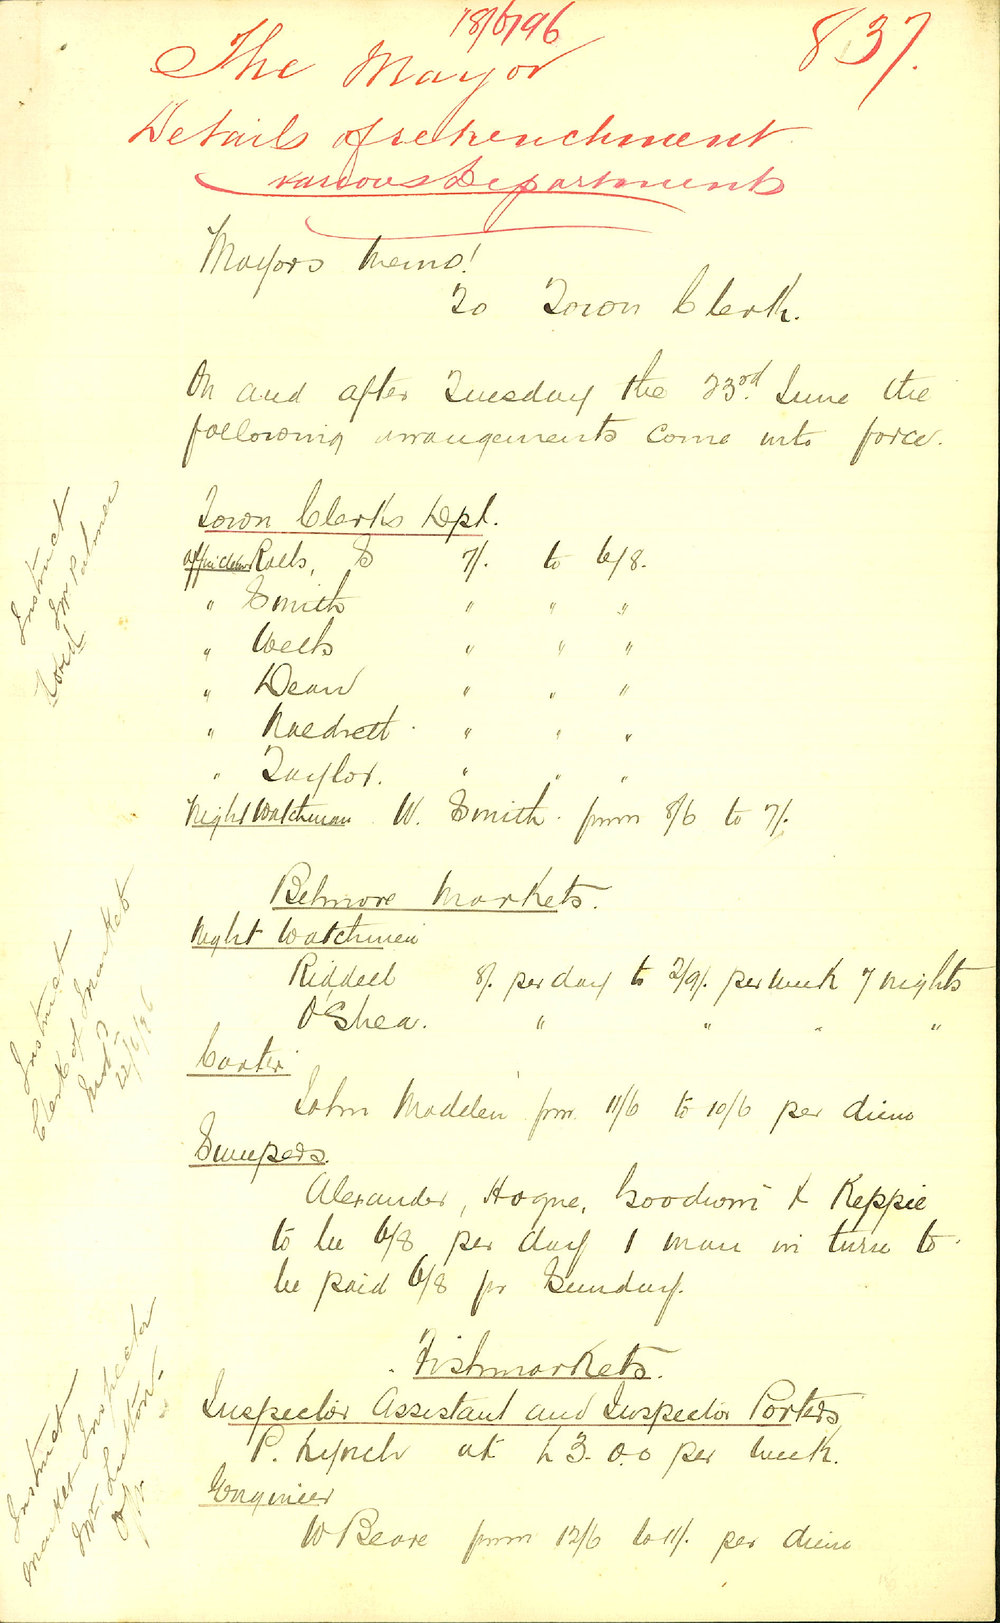 18/6/96
837.
The Mayor
Details of retrenchment
various Departments
Mayors Memo!
To Town Clerk.
On and after Tuesday the 23rd. June the
following arrangements come into force.
Town Clerks Dpt.
Instruct
Mr Palmer
Rolls, S 7/. to 6/8.
" Smith " " "
" Wells " " "
" Dean " " "
" " " "
" Taylor. " " "
Night Watchman W. Smith from 8/6 to 7/.
Belmore Markets.
Night Watchmen
Riddell 8/. per day to 2/9/. per week 7 nights
O'Shea. " " " "
Instruct
Clerk of Market
22/6/96
Carter
John Madden fm. 11/6 to 10/6 per diem
Sweepers.
Alexander, Hogue, Goodwin & Keppie
to be 6/8 per day 1 man in turn to
be paid 6/8 pr Sunday.
Fishmarkets.
Inspector Assistant and Inspector Porters
P. Lynch at £3.0.0 per week.
Instruct
Market Inspector
Engineer
W Beare from 12/6 to 11/. per diem